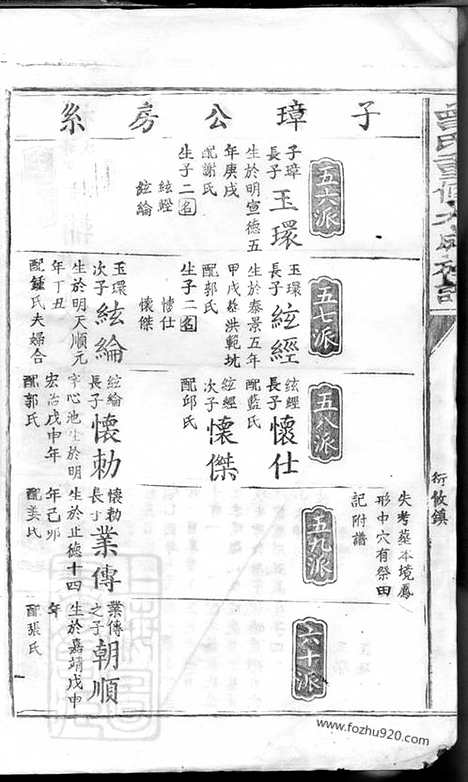 曾氏重修大成族譜
衍攸鎮
失考葬本境鳳
形中穴有祭田
記附譜
子璋公房系
五六派
子璋
長子
玉環
生於明宣德五
年庚戌
配謝氏
生子二名
絃經
絃綸
五七派
玉環
長子
絃經
生於泰景五年
甲戌葬洪範坑
配郭氏
生子二名
懷仕
懷傑
玉環
次子
絃綸
生於明天順元
年丁丑
配鍾氏夫婦合
五八派
絃經
長子
懷仕
配藍氏
絃經
次子
懷傑
配邱氏
絃綸
長子
懷勅
字心池生於明
宏治戊申年
配郭氏
五九派
懷勅
長子
業傳
生於正德十四
年己卯
配姜氏
六十派
業傳
之子
朝順
生於嘉靖戊申
年
配張氏
www.fozhu920.com